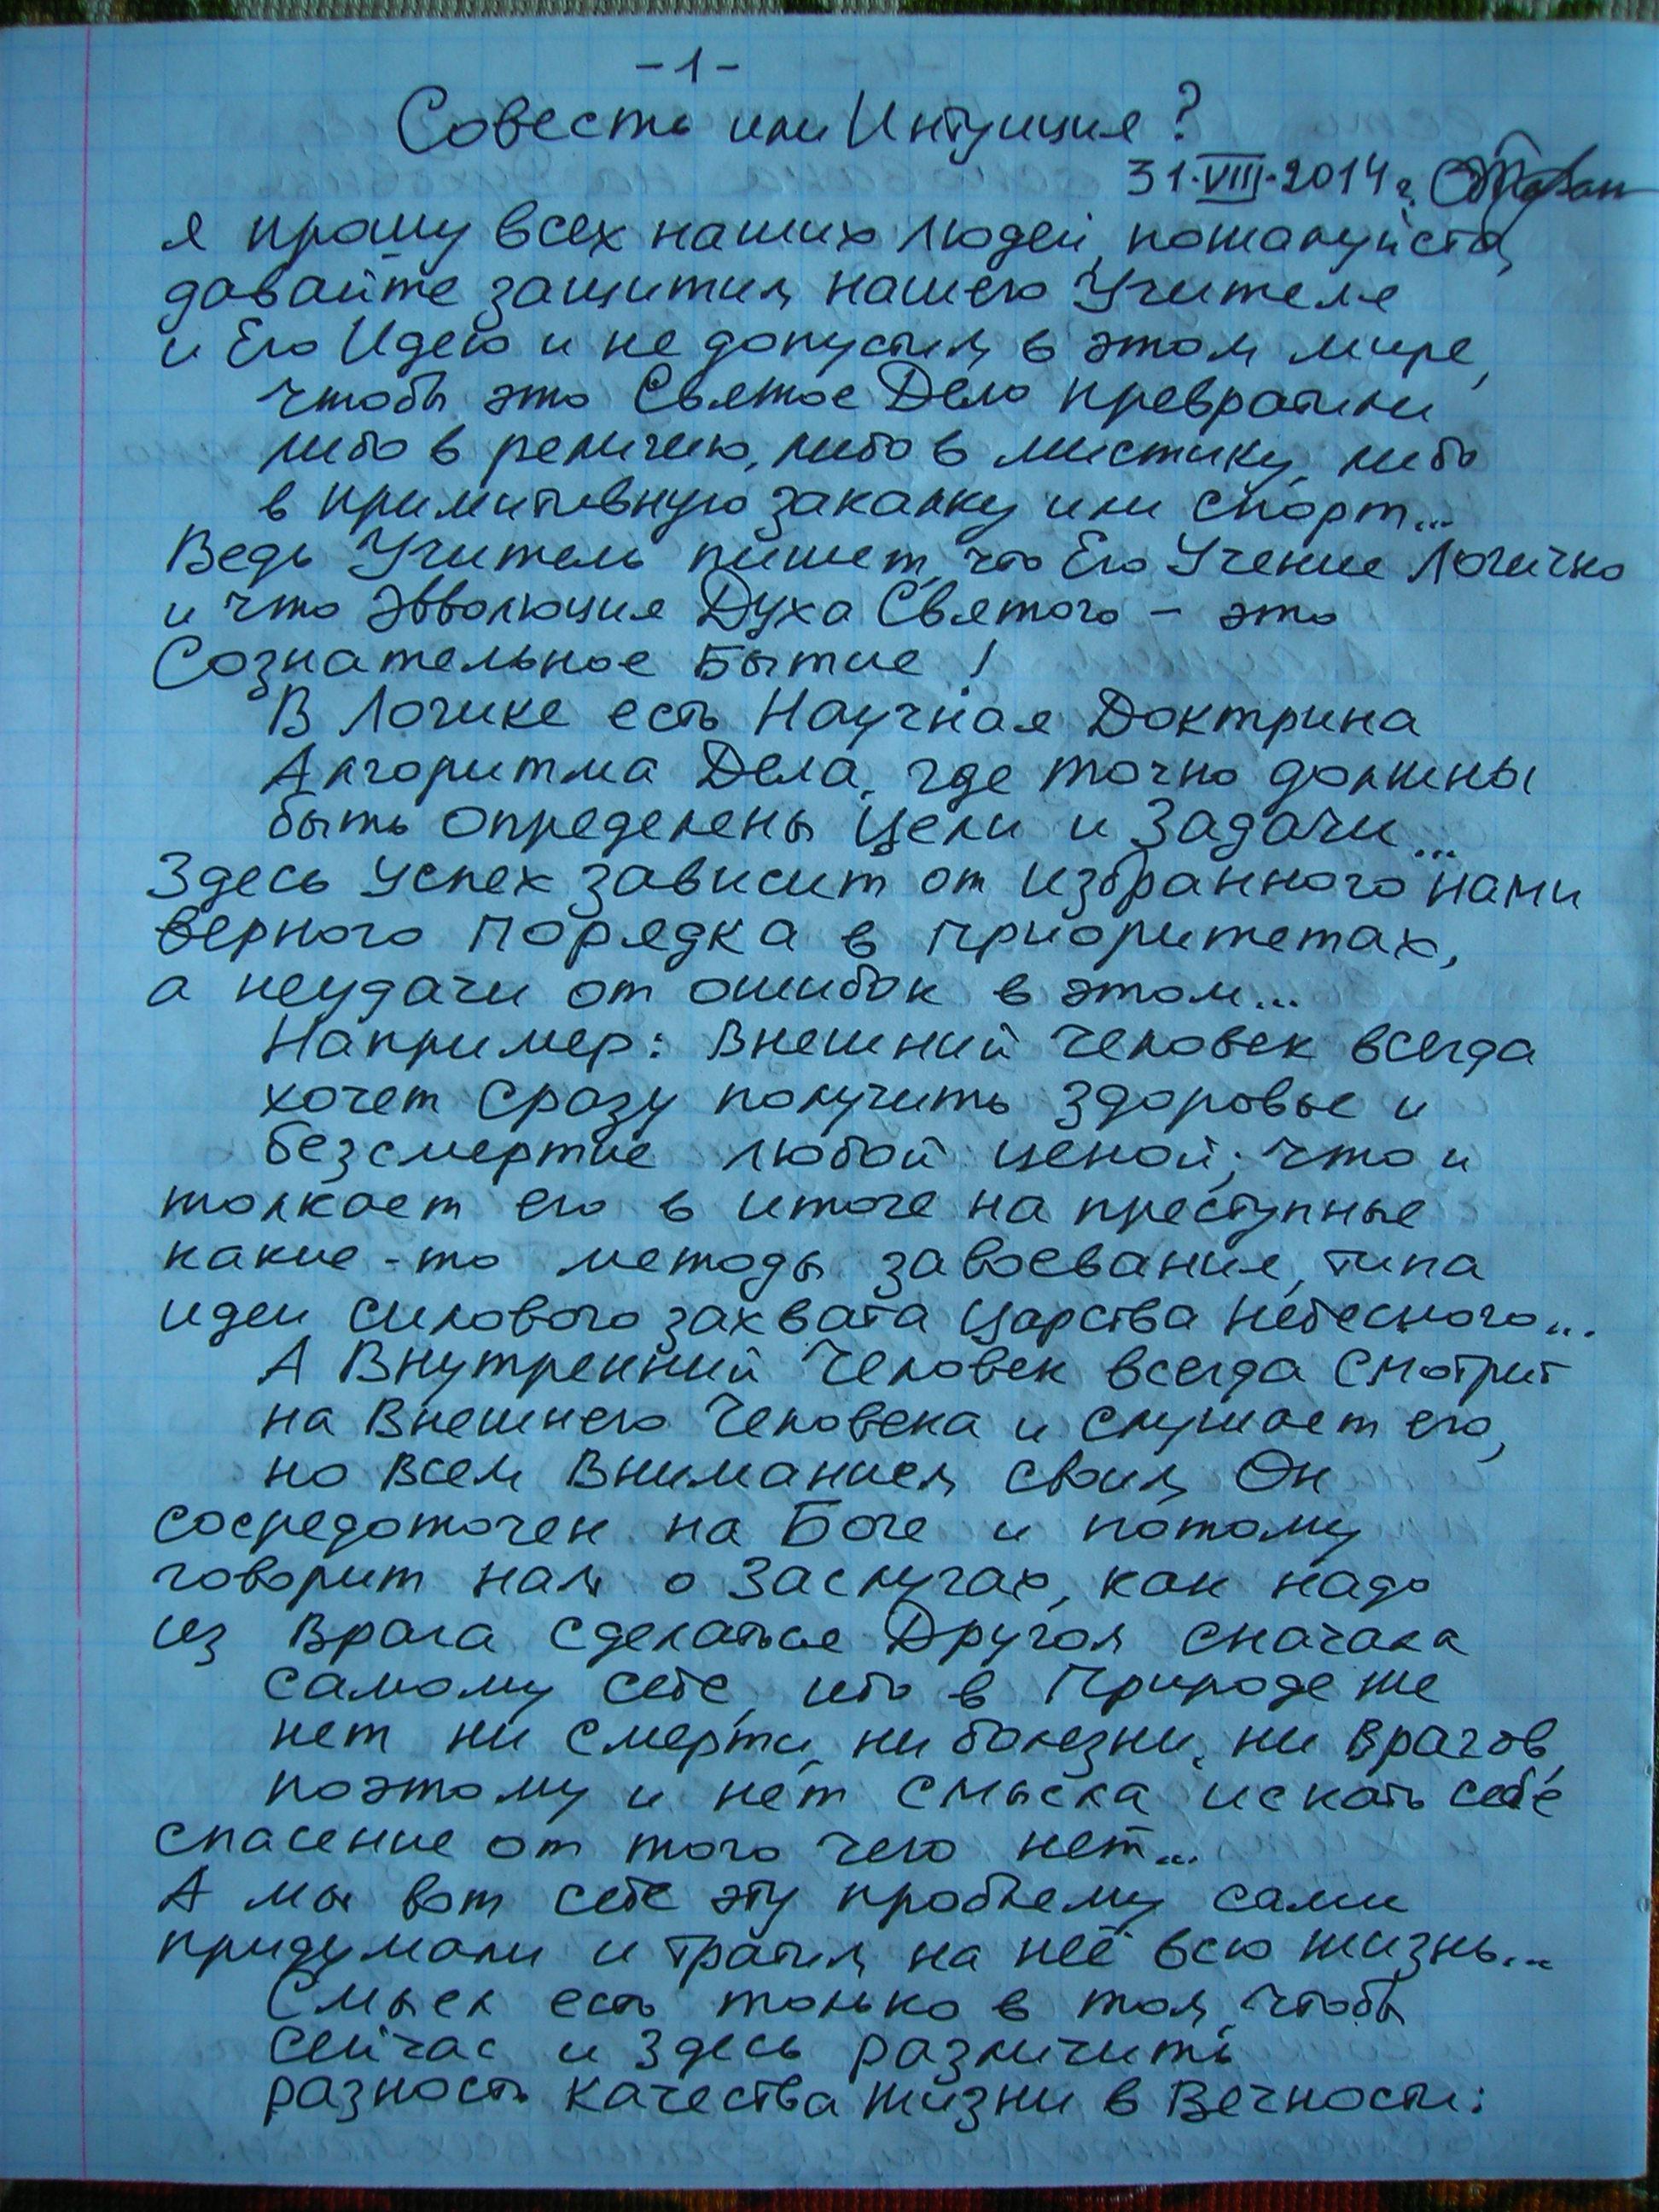 -1-
Совесть или Интуиция?
31.VIII.2014г.
я прошу всех наших людей, пожалуйста,
давайте защитим нашего Учителя
и Его Идею и не допустим в этом мире,
чтобы это Святое Дело превратили
либо в религию, либо в мистику, либо
в примитивную закалку или спорт...
Ведь Учитель пишет, что Его Учение Логично
и что Эвволюция Духа Святого - это
Сознательное Бытие!
В Логике есть Научная Доктрина
Алгоритма Дела, где точно должны
быть определены Цели и Задачи...
Здесь Успех зависит от избранного нами
верного порядка в приоритетах,
а неудачи от ошибок в этом...
Например: Внешний Человек всегда
хочет сразу получить здоровье и
безсмертие любой ценой, что и
толкает его в итоге на преступные
какие-то методы завоевания, типа
идеи силового захвата Царства Небесного...
А Внутренний Человек всегда смотрит
на Внешнего Человека и слушает его,
но всем Вниманием своим Он
сосредоточен на Боге и потому
говорит нам о Заслугах, как надо
из Врага сделаться Другом сначала
самому себе, ибо в Природе же
нет ни смерти, ни болезни, ни врагов,
поэтому и нет смысла искать себе
спасение от того чего нет...
А мы вот себе эту проблему сами
придумали и тратим на неё всю жизнь...
Смысл есть только в том, чтобы
сейчас и здесь различить
разность качества жизни в Вечности: